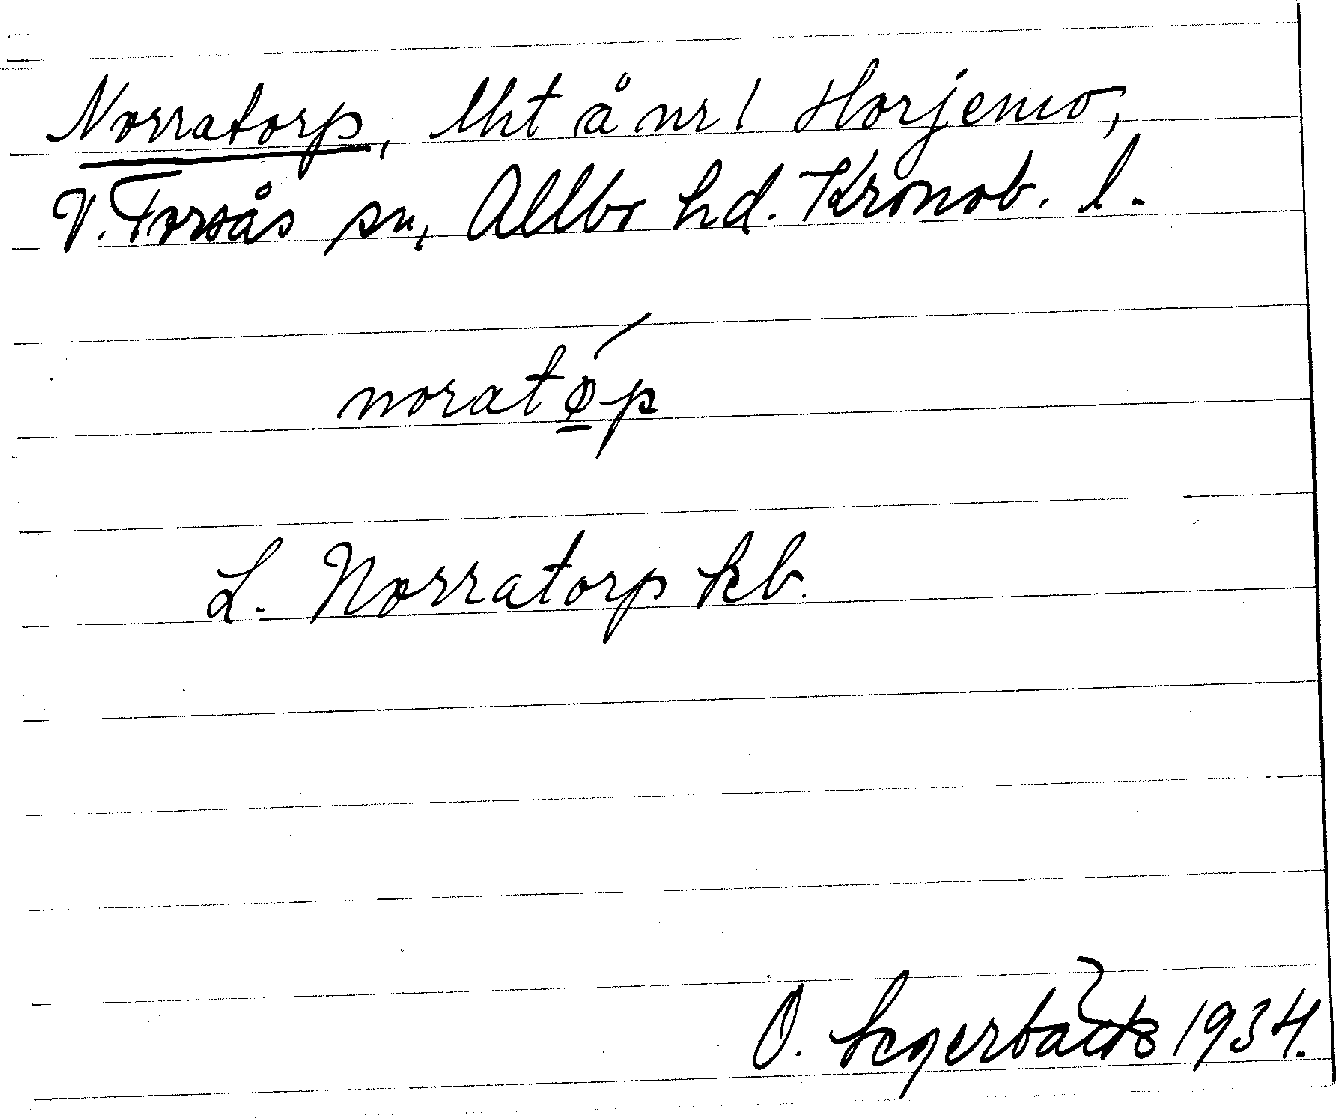 Norratorp, lht å nr 1 Horjemo,
V. Torsås sn, Allbo hd. Kronob. l.
noratǿp
L. Norratorp kb.
O. 1934.